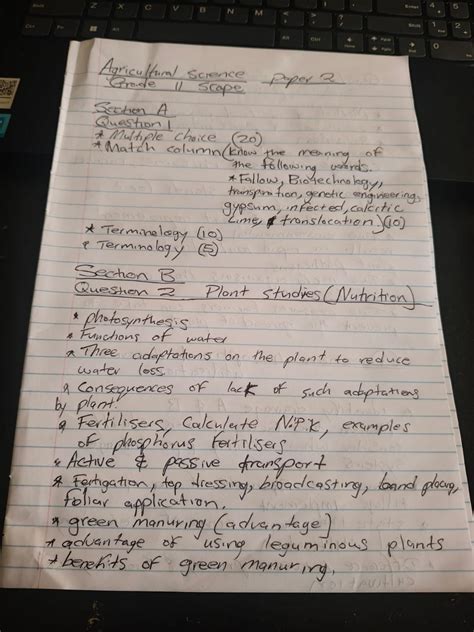 Agricultural Science Paper 2
Grade 11 Scope
Section A
Question 1
* Multiple choice (20)
* Match column (know the meaning of
the following words.
* Fallow, Biotechnology,
transpiration, genetic engineering,
gypsum, infected, calcitic
Lime, translocation.) (10)
* Terminology (10)
* Terminology (5)
Section B
Question 2 Plant studies (Nutrition)
* photosynthesis
* Functions of water
* Three adaptations on the plant to reduce
water loss
* Consequences of lack of such adaptations
by plant.
* Fertilisers, Calculate N:P:K, examples
of phosphorus fertilisers
* Active & passive transport
* Fertigation, top dressing, broadcasting, band placing,
foliar application.
* green manuring (advantage)
* advantage of using leguminous plants
* benefits of green manuring,